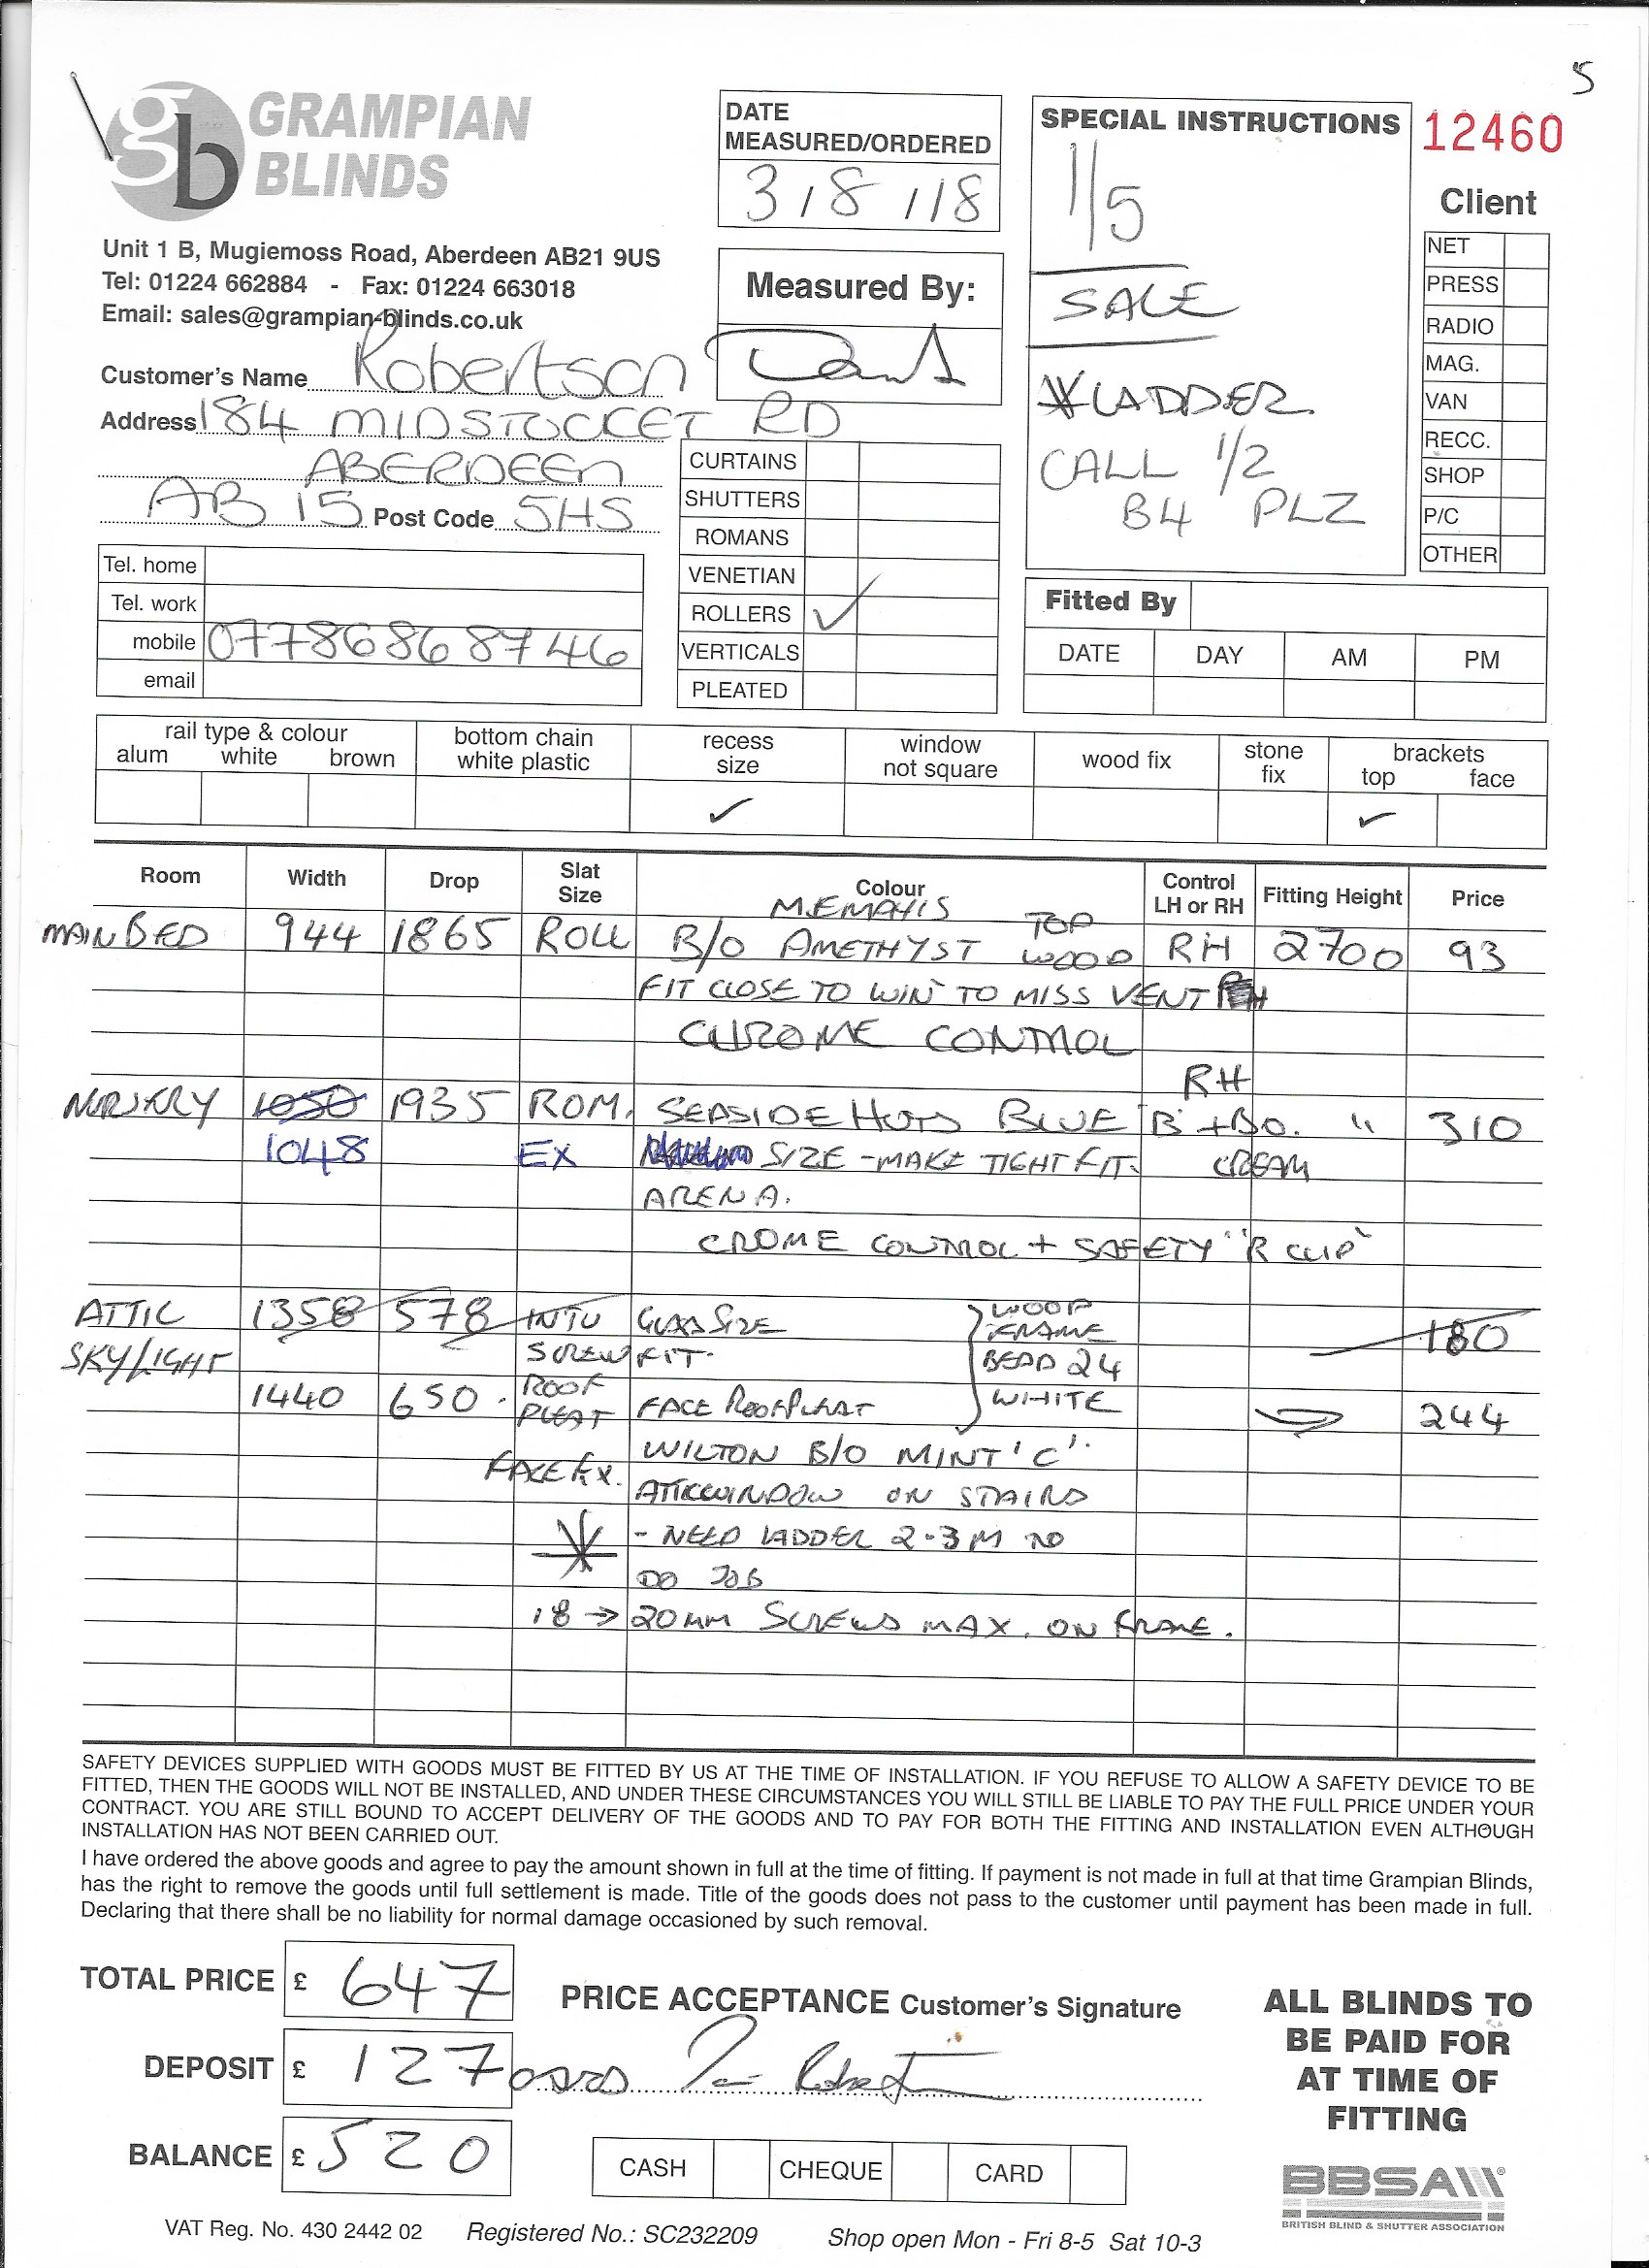 5
GRAMPIAN
BLINDS
gb
Unit 1 B, Mugiemoss Road, Aberdeen AB21 9US
Tel: 01224 662884 - Fax: 01224 663018
Email: sales@grampian-blinds.co.uk
DATE
MEASURED/ORDERED
3/8/18
Measured By:
SPECIAL INSTRUCTIONS
1/5
SALE
* LADDER
CALL 1/2
B4 PLZ
12460
Client
NET
PRESS
RADIO
MAG.
VAN
RECC.
SHOP
P/C
OTHER
Customer's Name Robertson
Address 184 MIDSTOCKET RD
ABERDEEN
AB 15 Post Code 5HS
Tel. home
Tel. work
mobile 07786868746
email
CURTAINS
SHUTTERS
ROMANS
VENETIAN
ROLLERS ✓
VERTICALS
PLEATED
Fitted By
DATE DAY AM PM
rail type & colour
alum white brown
bottom chain
white plastic
recess
size
window
not square
wood fix
stone
fix
brackets
top face
✓ ✓
Room Width Drop Slat Size Colour Control LH or RH Fitting Height Price
MEMPHIS TOP
MAIN BED 944 1865 ROLL B/O AMETHYST WOOD RH 2700 93
FIT CLOSE TO WIN TO MISS VENT
CHROME CONTROL
RH
NURSERY 1050 1935 ROM. SEASIDE HUTS BLUE B+BO. " 310
1048 EX SIZE - MAKE TIGHT FIT. CREAM
ARENA.
CROME CONTROL + SAFETY "R CLIP"
ATTIC 1358 578 INTU GLASS SIZE WOOD FRAME 180
SKYLIGHT SCREW FIT. BEAD 24
1440 650. ROOF PLEAT FACE ROOFPLEAT WHITE 244
WILTON B/O MINT 'C'.
FACE FIX. ATTIC WINDOW ON STAIRS
* - NEED LADDER 2-3M TO
DO JOB
18 → 20MM SCREWS MAX. ON FRAME.
SAFETY DEVICES SUPPLIED WITH GOODS MUST BE FITTED BY US AT THE TIME OF INSTALLATION. IF YOU REFUSE TO ALLOW A SAFETY DEVICE TO BE
FITTED, THEN THE GOODS WILL NOT BE INSTALLED, AND UNDER THESE CIRCUMSTANCES YOU WILL STILL BE LIABLE TO PAY THE FULL PRICE UNDER YOUR
CONTRACT. YOU ARE STILL BOUND TO ACCEPT DELIVERY OF THE GOODS AND TO PAY FOR BOTH THE FITTING AND INSTALLATION EVEN ALTHOUGH
INSTALLATION HAS NOT BEEN CARRIED OUT.
I have ordered the above goods and agree to pay the amount shown in full at the time of fitting. If payment is not made in full at that time Grampian Blinds,
has the right to remove the goods until full settlement is made. Title of the goods does not pass to the customer until payment has been made in full.
Declaring that there shall be no liability for normal damage occasioned by such removal.
TOTAL PRICE £ 647
PRICE ACCEPTANCE Customer's Signature
DEPOSIT £ 127
BALANCE £ 520
CASH CHEQUE CARD
ALL BLINDS TO
BE PAID FOR
AT TIME OF
FITTING
BBSA
BRITISH BLIND & SHUTTER ASSOCIATION
VAT Reg. No. 430 2442 02 Registered No.: SC232209 Shop open Mon - Fri 8-5 Sat 10-3